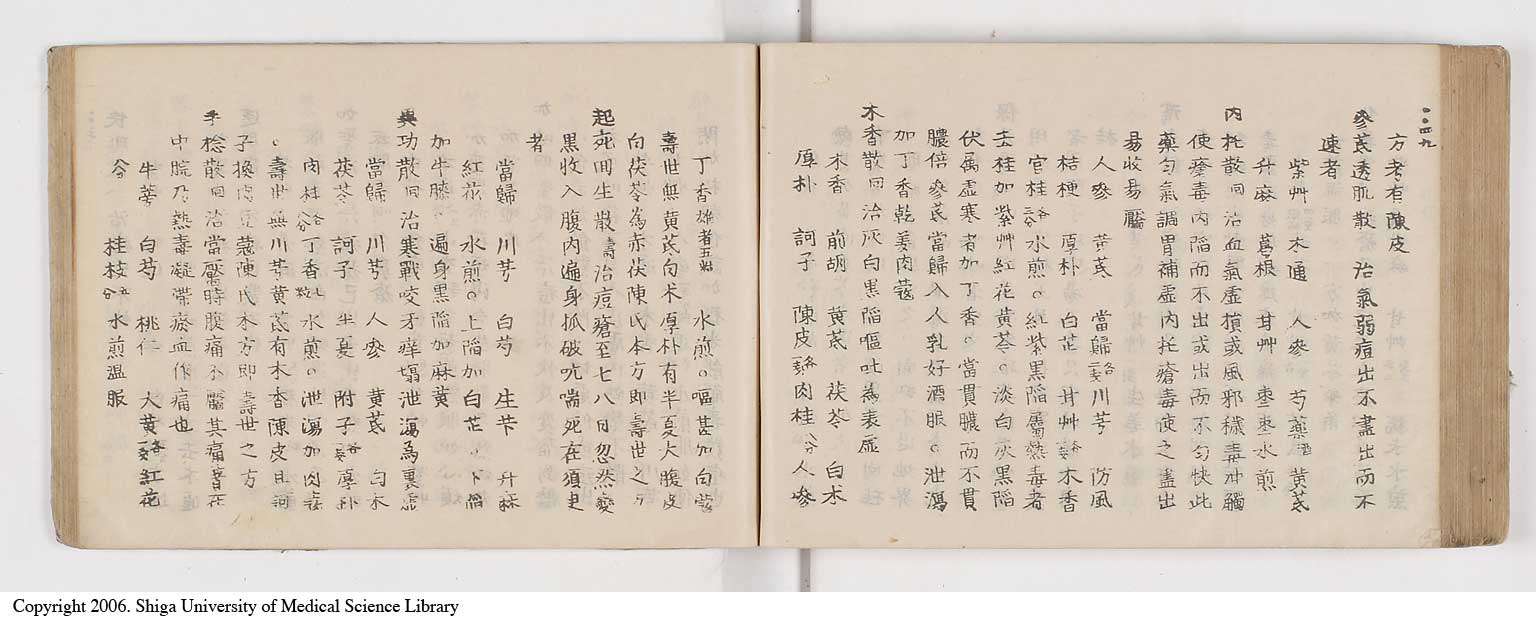 〇〇四九
方考有陳皮
參芪透肌散 治氣弱痘出不盡出而不
速者
紫艸 木通 人參 芍藥酒 黃芪
升麻 葛根 甘艸 棗 水煎
内托散 治血氣虛損或風邪穢毒冲觸
使瘡毒内陷而不出或出而不匀快此
藥匀氣調胃補虛内托瘡毒使之盡出
易收易靨
人參 黃芪 當歸 川芎 防風
桔梗 厚朴 白芷 甘艸 木香
官桂 水煎。紅紫黑陷屬熱毒者
去桂加紫艸紅花黃芩。淡白灰黑陷
伏屬虛寒者加丁香。當貫膿而不貫
膿倍參芪當歸入人乳好酒服。泄瀉
加丁香乾姜肉蔻
木香散 治灰白黑陷嘔吐爲表虛
木香 前胡 黃芪 茯苓 白朮
厚朴 訶子 陳皮 肉桂 人參
丁香雄者五 水煎。嘔甚加白蔻
壽世無黃芪白朮厚朴有半夏大腹皮
白茯苓爲赤茯陳氏本方即壽世之方
起死回生散 壽 治痘瘡至七八日忽然變
黑收入腹内遍身抓破吭喘死在須臾
者
當歸 川芎 白芍 生芐 升麻
紅花 水煎。上陷加白芷。下陷
加牛膝。遍身黑陷加麻黃
異功散 治寒戰咬牙痒塌泄瀉爲裏虛
當歸 川芎 人參 黃芪 白朮
茯苓 訶子 半夏 附子 厚朴
肉桂 丁香七粒 水煎。泄瀉加肉蔻
。壽世無川芎黃芪有木香陳皮且訶
子換肉蔻陳氏本方即壽世之方
手捻散 治當靨時腹痛不靨其痛著在
中脘乃熱毒凝滯瘀血作痛也
牛蒡 白芍 桃仁 大黃 紅花
桂枝五分 水煎溫服
Copyright 2006. Shiga University of Medical Science Library